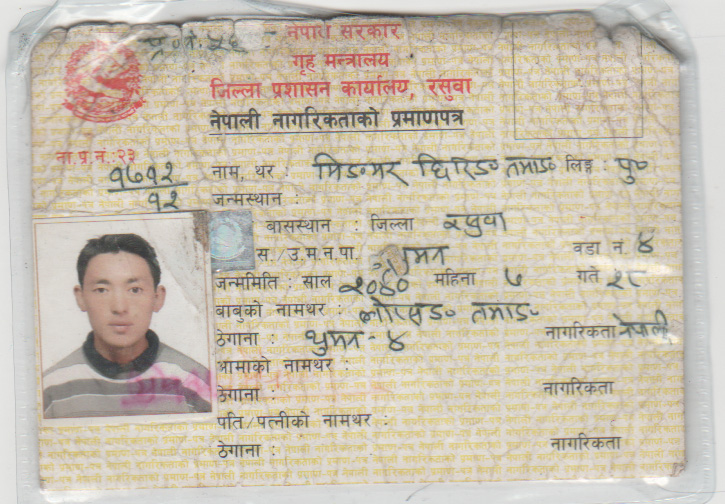 प्र०नं. ५६
नेपाल सरकार
गृह मन्त्रालय
जिल्ला प्रशासन कार्यालय, रसुवा
नेपाली नागरिकताको प्रमाणपत्र
ना.प्र.नं.:२३
१७१२
१२
नाम, थर : छिरिङ तमाङ लिङ्ग : पु०
जन्मस्थान :
बासस्थान : जिल्ला रसुवा
स./उ.म.न.पा. वडा नं. ४
जन्ममिति : साल २०४० महिना ७ गते २८
बाबुको नामथर : तमाङ
ठेगाना : थुमन - ४ नागरिकता नेपाली
आमाको नामथर :
ठेगाना : नागरिकता
पति/पत्नीको नामथर :
ठेगाना : नागरिकता